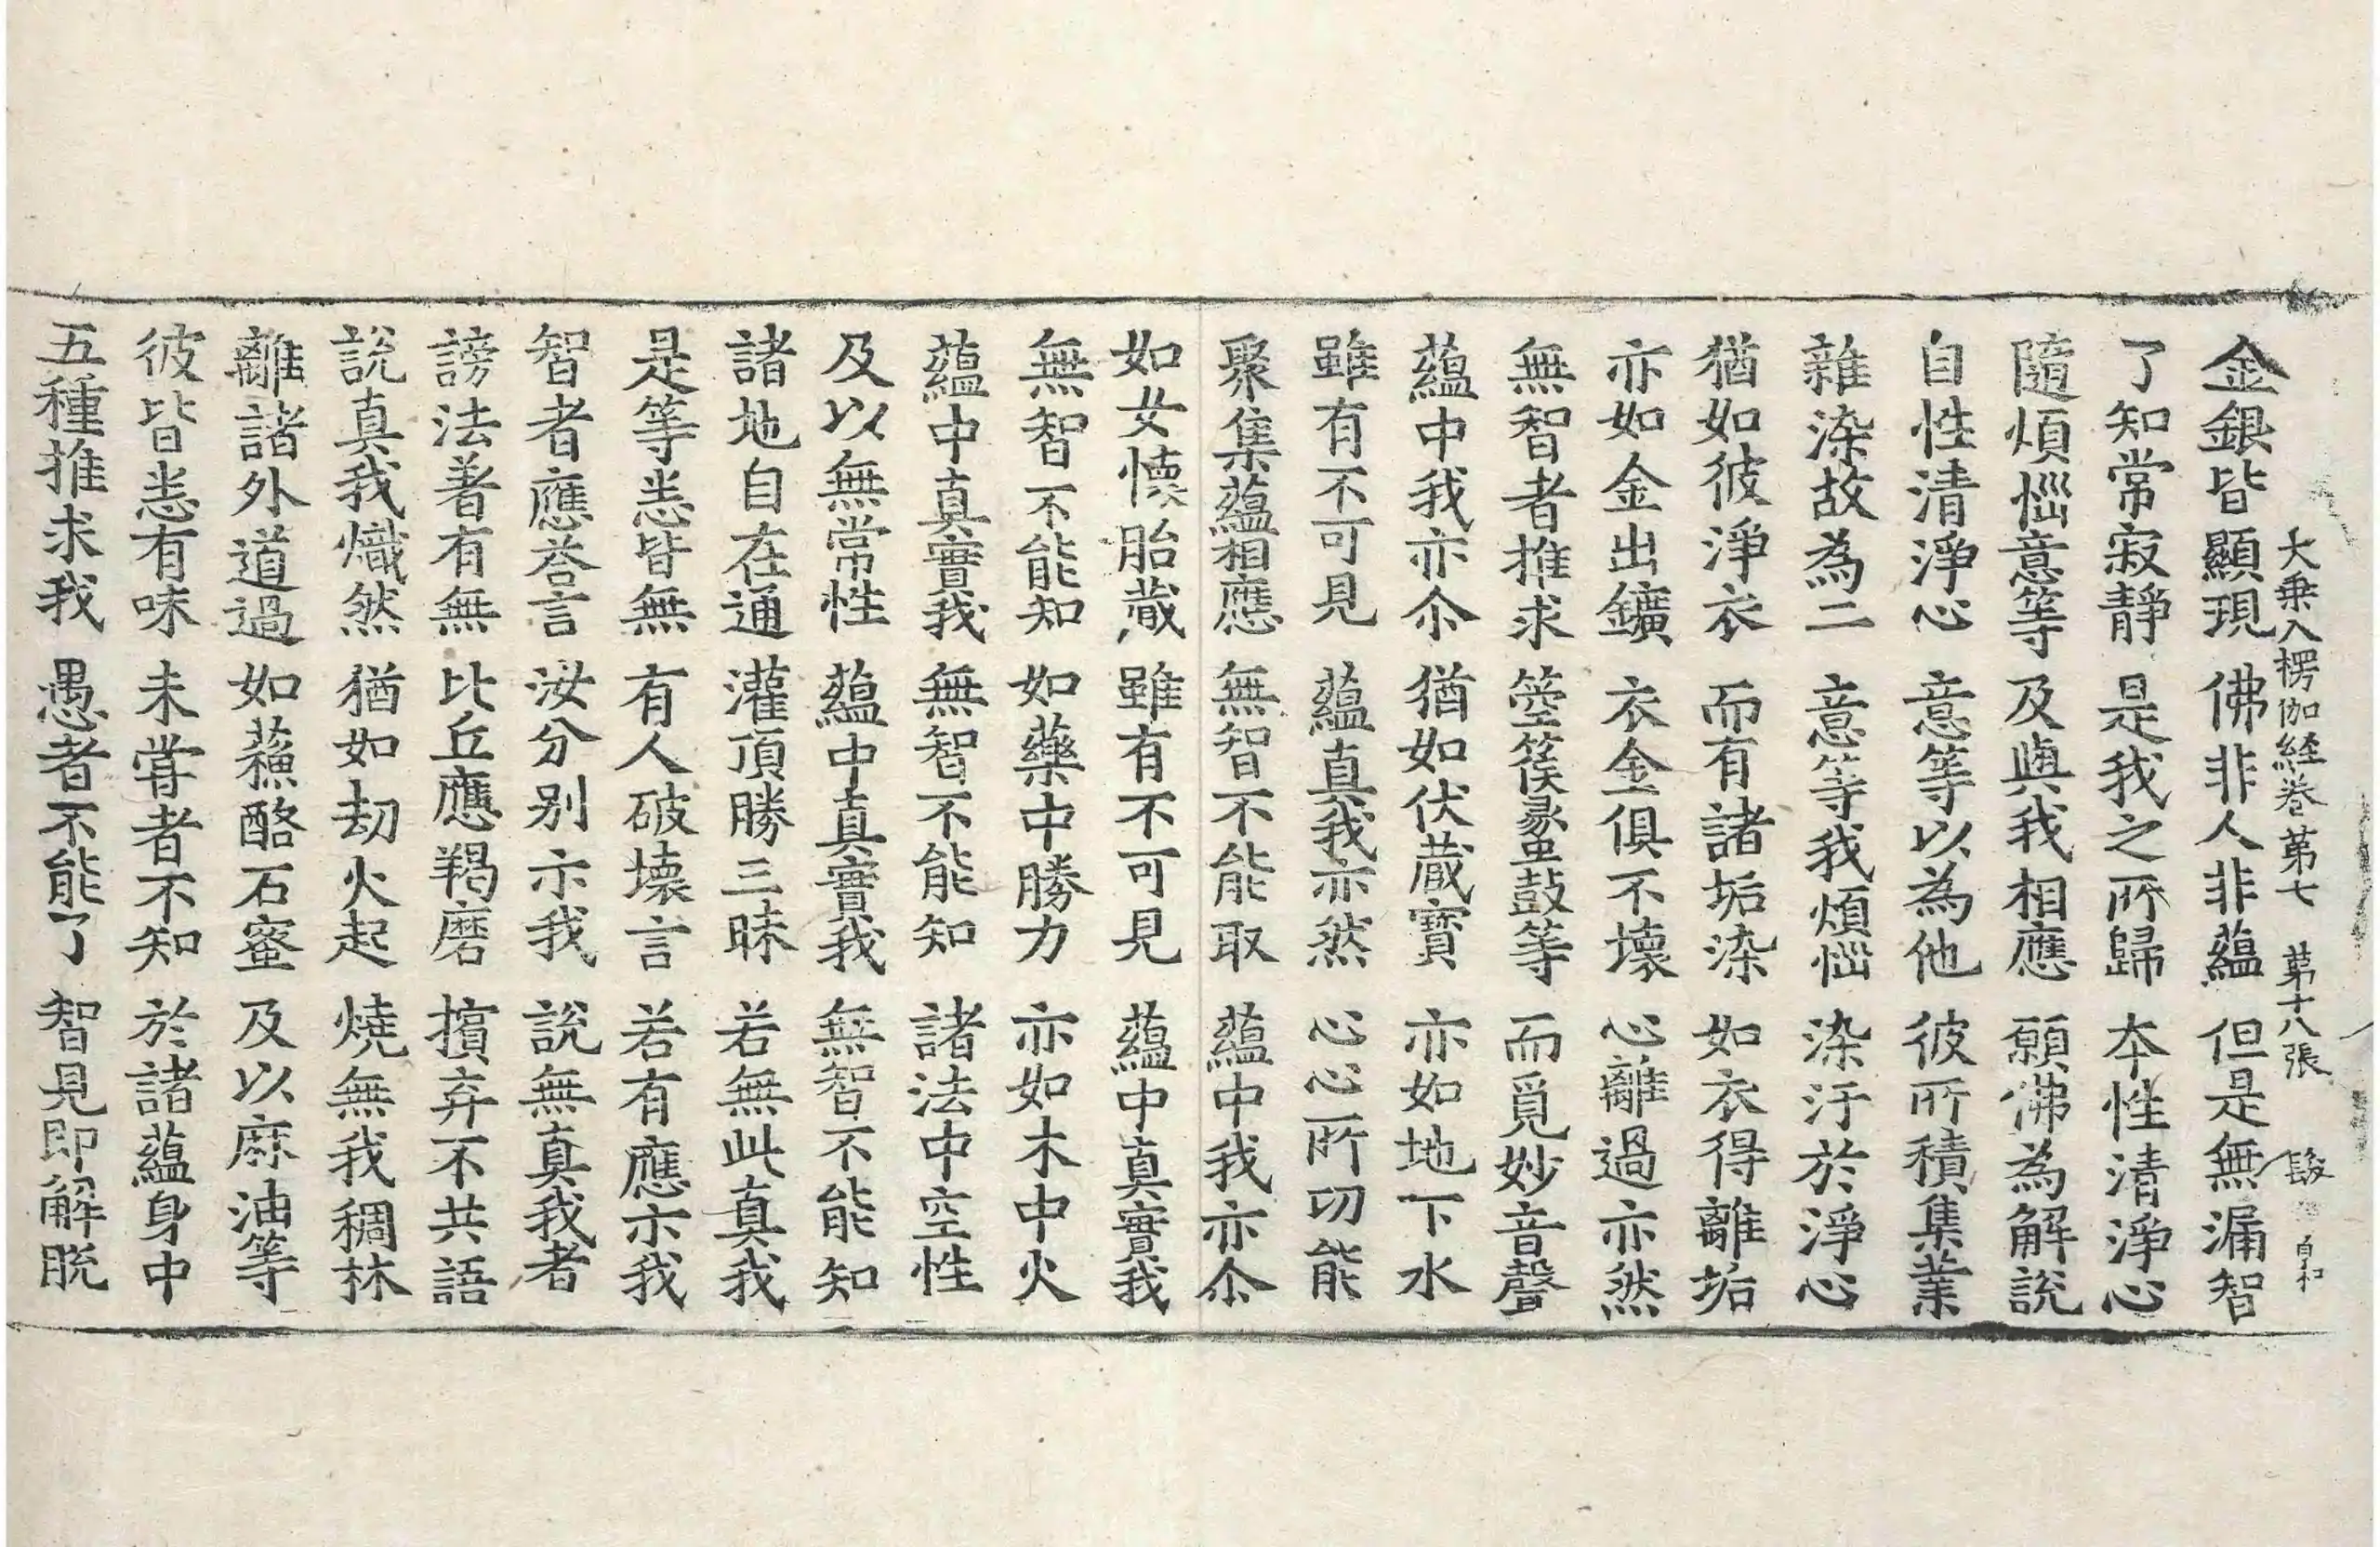 大乗入楞伽経巻第七　第十八張　䭾　自和
金銀皆顯現　佛非人非蘊　但是無漏智
了知常寂靜　是我之所歸　本性清淨心
隨煩惱意等　及與我相應　願佛為解說
自性清淨心　意等以為他　彼所積集業
雜染故為二　意等我煩惱　染汙於淨心
猶如彼淨衣　而有諸垢染　如衣得離垢
亦如金出鑛　衣金俱不壞　心離過亦然
無智者推求　箜篌蠡鼓等　而覓妙音聲
蘊中我亦尒　猶如伏藏寶　亦如地下水
雖有不可見　蘊真我亦然　心心所功能
聚集蘊相應　無智不能取　蘊中我亦尒
如女懷胎藏　雖有不可見　蘊中真實我
無智不能知　如藥中勝力　亦如木中火
蘊中真實我　無智不能知　諸法中空性
及以無常性　蘊中真實我　無智不能知
諸地自在通　灌頂勝三昧　若無此真我
是等悉皆無　有人破壞言　若有應示我
智者應荅言　汝分別示我　說無真我者
謗法著有無　比丘應羯磨　擯弃不共語
說真我熾然　猶如劫火起　燒無我稠林
離諸外道過　如蘓酪石蜜　及以麻油等
彼皆悉有味　未甞者不知　於諸蘊身中
五種推求我　愚者不能了　智見即解脫